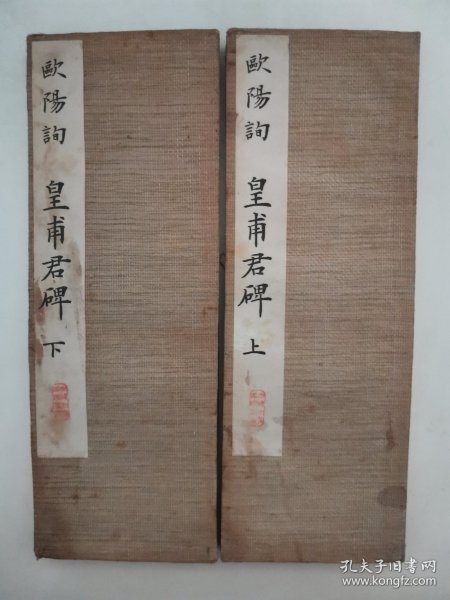 歐陽詢 皇甫君碑 上
歐陽詢 皇甫君碑 下
孔夫子旧书网
www.kongfz.com